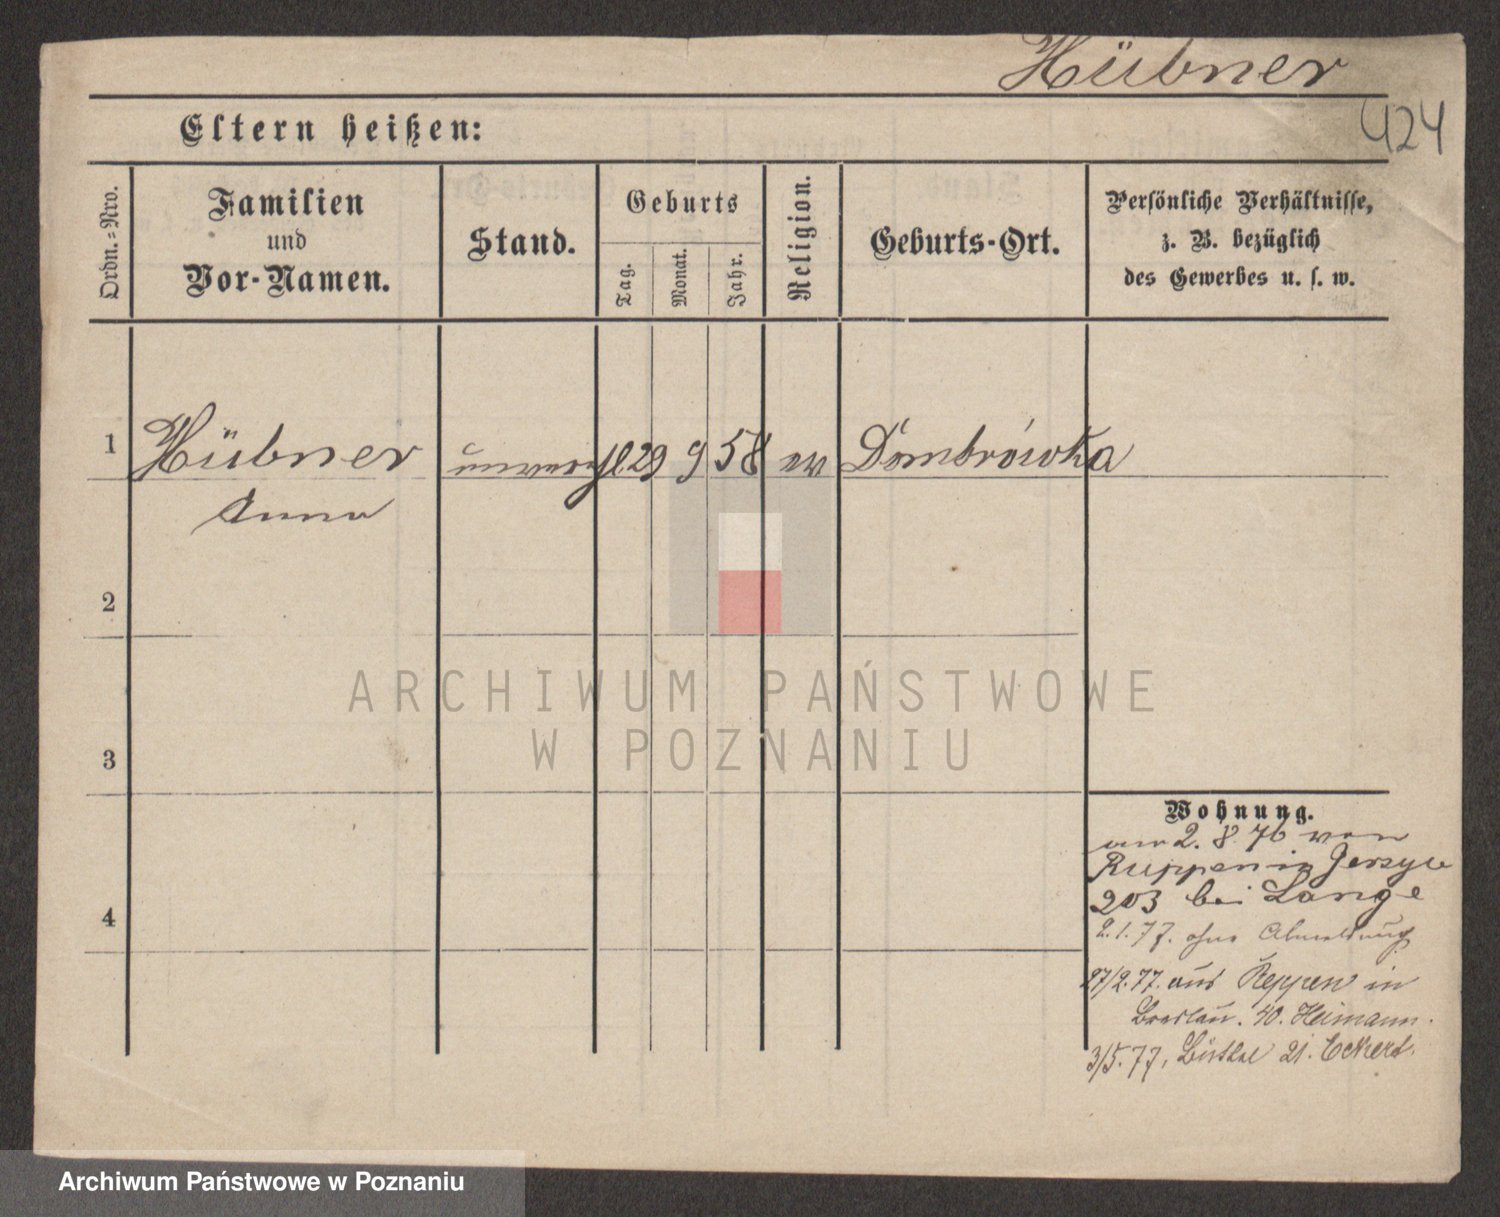 Hübner
424
Eltern heißen:
Ordn.=Nro.
Familien
und
Vor-Namen.
Stand.
Geburts
Tag.
Monat.
Jahr.
Religion.
Geburts-Ort.
Persönliche Verhältnisse,
z. B. bezüglich
des Gewerbes u. s. w.
1 Hübner unverehl. 29 9 58 ev Dombrówka
Anna
2
ARCHIWUM PAŃSTWOWE
W POZNANIU
3
Wohnung.
am 2. 8. 76 von
Ruppen in Jersyce
203 bei Lange
2.1.77. ohne Abmeldung
4
27/2.77. aus Reppen in
Breslau. 40. Heimann.
3/5.77, 21. Eckert.
Archiwum Państwowe w Poznaniu